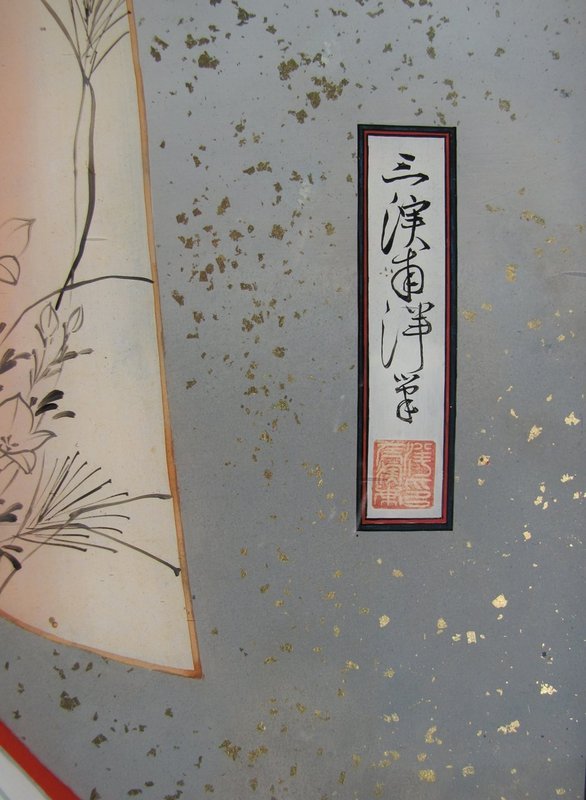 三濱南洋筆